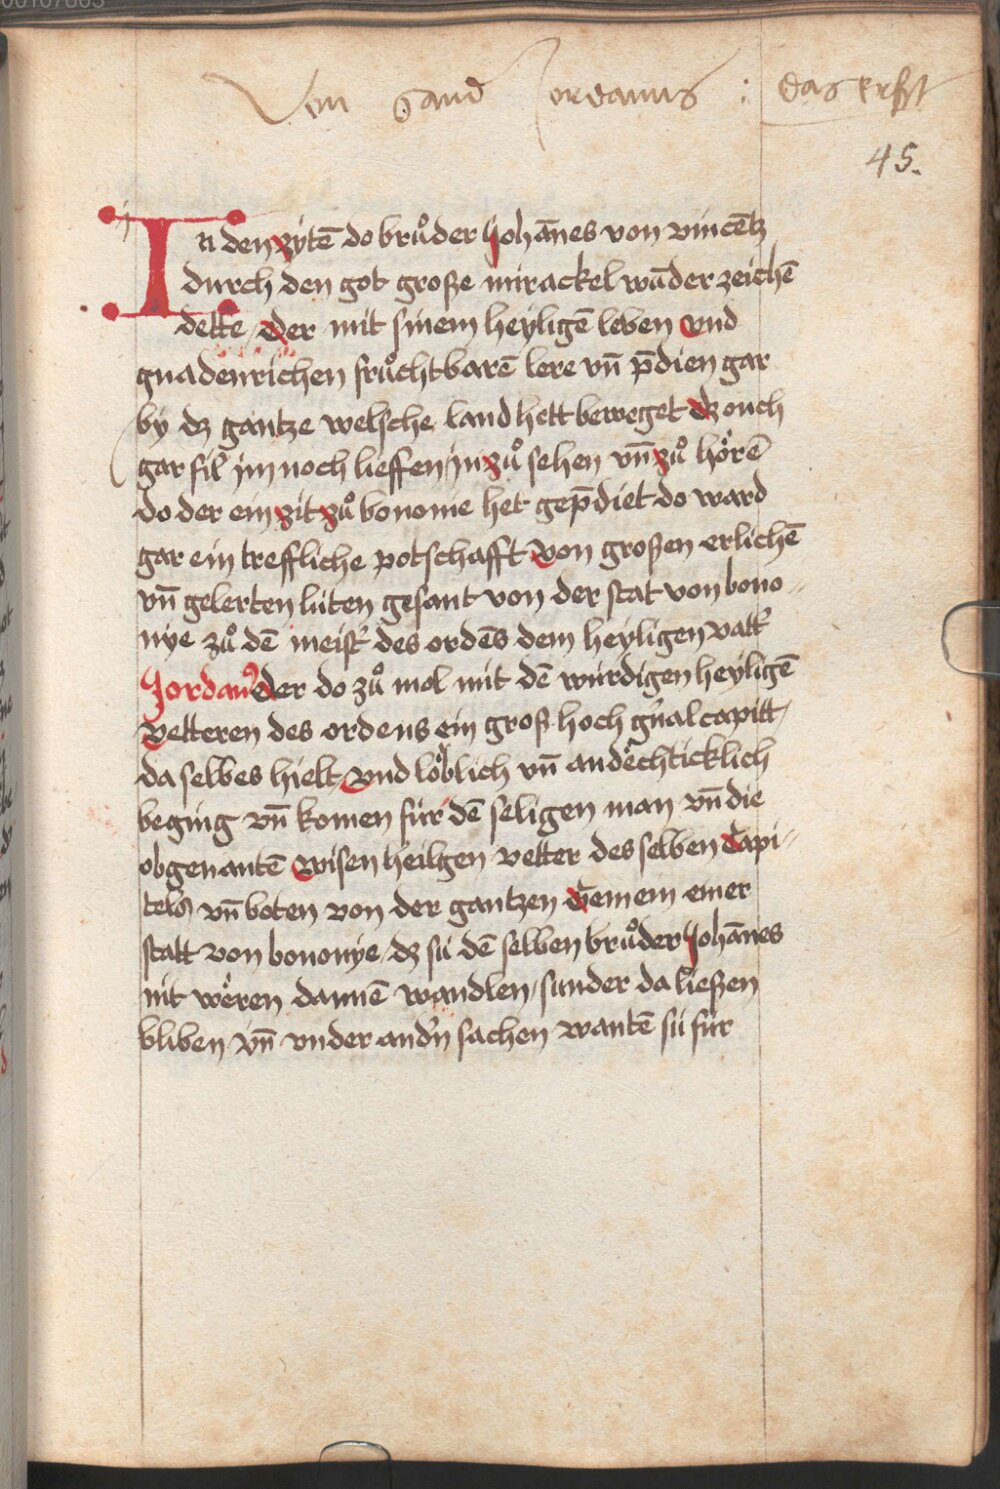 Von Sand Jordanus : das erst
45.
In den zyten̄ do brůder Johan̄es von vincen̄tz
durch den got große mirackel wun̄der zeichen̄
dette / der mit sinem heyligen̄ leben vnd
gnadenrichen frůchtbaren̄ lere vn̄ p̄dien gar
by dz gantze welsche land hett beweget dz ouch
gar fil im noch lieffen / in zů sehen vn̄ zů hören̄
do der ein zit zů bononie het gep̄diet do ward
gar ein treffliche potschafft von großen erlichen̄
vn̄ gelerten lüten gesant von der stat von bono-
nye zů dē meist̓ des ordēs dem heyligen vatt̓
Jordanꝰ der do zů mol mit dē würdigen heyligen̄
vetteren des ordens ein groß hoch gn̓alcapitt̓
da selbes hielt / vnd löblich vn̄ andëchticklich
beging vn̄ komen für dē seligen man vn̄ die
obgenanten̄ wisen heilgen vetter des selben Capi-
tels vn̄ boten von der gantzen Gemein einer
statt von bononye / dz sü dē selben brůder Johan̄es
nit wëren dannen̄ wandlen / sunder da ließen
bliben vn̄ vnder and̓n sachen wanten̄ sü für